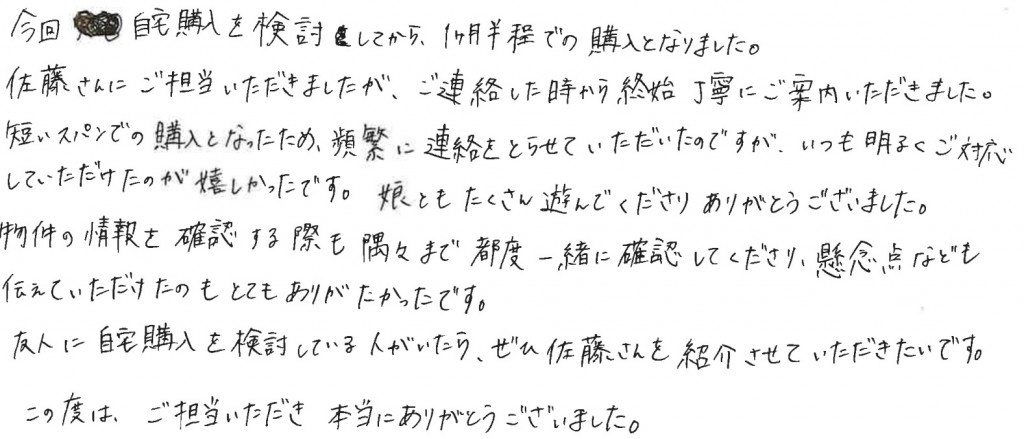 今回 自宅購入を検討してから、1ヶ月半程での購入となりました。
佐藤さんにご担当いただきましたが、ご連絡した時から終始丁寧にご案内いただきました。
短いスパンでの購入となったため、頻繁に連絡をとらせていただいたのですが、いつも明るくご対応
していただけたのが嬉しかったです。娘ともたくさん遊んでくださりありがとうございました。
物件の情報を確認する際も隅々まで都度一緒に確認してくださり、懸念点なども
伝えていただけたのもとてもありがたかったです。
友人に自宅購入を検討している人がいたら、ぜひ佐藤さんを紹介させていただきたいです。
この度は、ご担当いただき本当にありがとうございました。